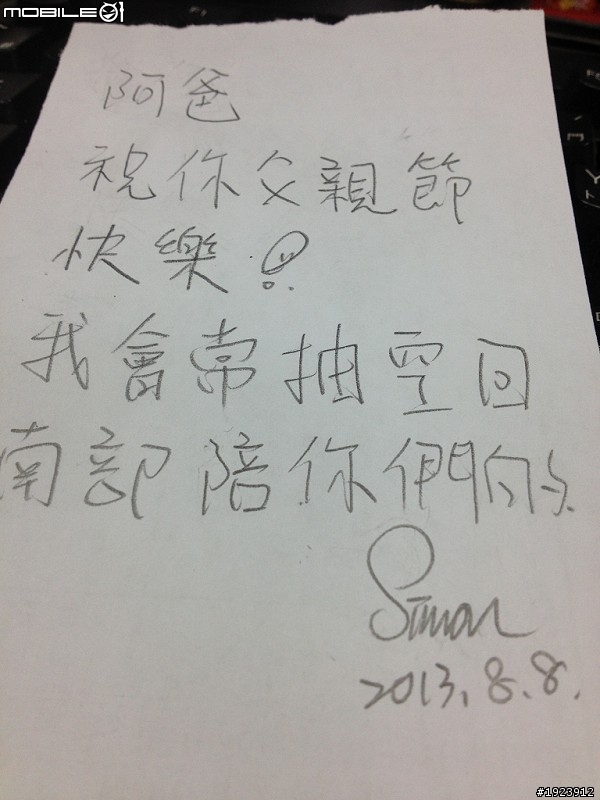 MOBILE01
阿爸
祝你父親節
快樂!
我會常抽空回
南部陪你們的.
Simon
2013.8.8.
#1923912